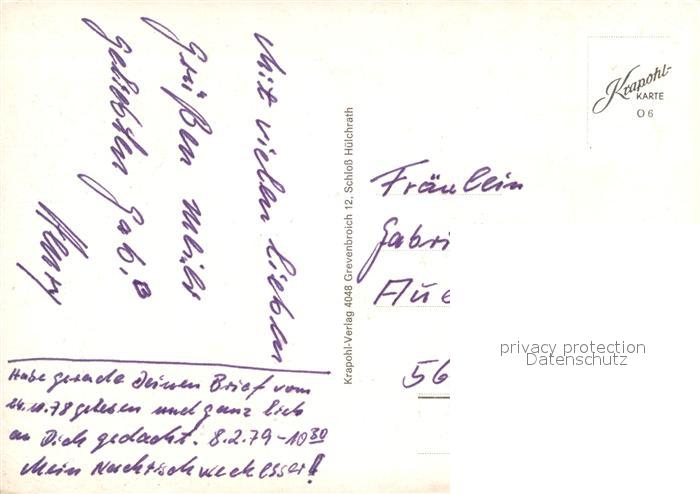 Mit vielen lieben
Grüßen meiner
geliebten Gabi
Henry
Habe gerade Deinen Brief vom
24.10.78 gelesen und ganz lieb
an Dich gedacht. 8.2.79-10 30
Mein
Krapohl-Verlag 4048 Grevenbroich 12, Schloß Hülchrath
Krapohl-
KARTE
O 6
Fräulein
Gabri
Aue
56
privacy protection
Datenschutz